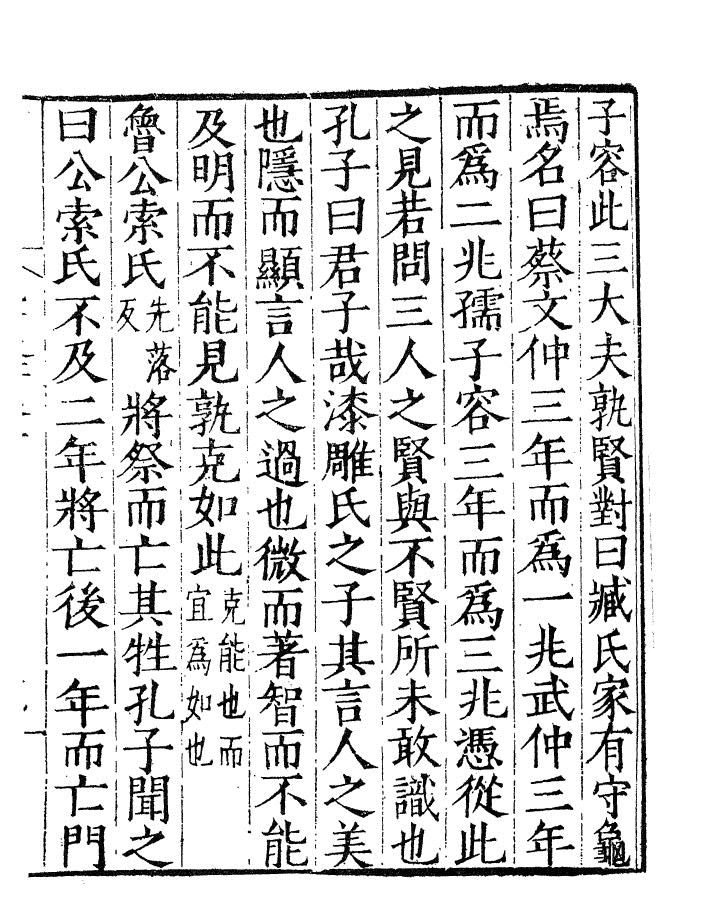 子容此三大夫孰賢對曰臧氏家有守龜
焉名曰蔡文仲三年而為一兆武仲三年
而為二兆孺子容三年而為三兆憑從此
之見若問三人之賢與不賢所未敢識也
孔子曰君子哉漆雕氏之子其言人之美
也隱而顯言人之過也微而著智而不能
及明而不能見孰克如此克能也而宜為如也
魯公索氏先落反將祭而亡其牲孔子聞之
曰公索氏不及二年將亡後一年而亡門